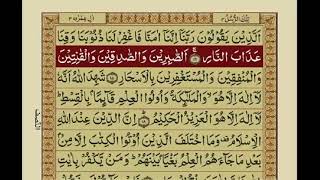 تِلْكَ الرُّسُلُ ۳
اٰلِ عِمْرٰن ۳
اَلَّذِيْنَ يَقُوْلُوْنَ رَبَّنَاۤ اِنَّنَاۤ اٰمَنَّا فَاغْفِرْ لَنَا ذُنُوْبَنَا وَقِنَا
عَذَابَ النَّارِ ﴿١٦﴾ اَلصّٰبِرِيْنَ وَالصّٰدِقِيْنَ وَالْقٰنِتِيْنَ
وَالْمُنْفِقِيْنَ وَالْمُسْتَغْفِرِيْنَ بِالْاَسْحَارِ ﴿١٧﴾ شَهِدَ اللّٰهُ اَنَّهٗ
لَاۤ اِلٰهَ اِلَّا هُوَ ۙ وَالْمَلٰٓئِكَةُ وَاُولُوا الْعِلْمِ قَآئِمًۢا بِالْقِسْطِ ؕ
لَاۤ اِلٰهَ اِلَّا هُوَ الْعَزِيْزُ الْحَكِيْمُ ﴿١٨﴾ اِنَّ الدِّيْنَ عِنْدَ اللّٰهِ
الْاِسْلَامُ ۟ وَمَا اخْتَلَفَ الَّذِيْنَ اُوْتُوا الْكِتٰبَ اِلَّا مِنْۢ
بَعْدِ مَا جَآءَهُمُ الْعِلْمُ بَغْيًۢا بَيْنَهُمْ ؕ وَمَنْ يَّكْفُرْ بِاٰيٰتِ